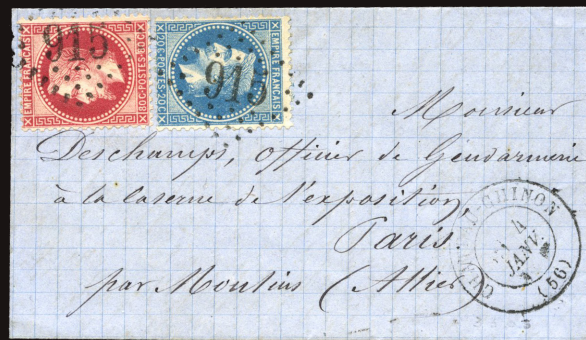 EMPIRE FRANÇAIS
80C·POSTES·80C
915
EMPIRE FRANÇAIS
20C·POSTES·20C
915
Monsieur
Deschamps, officier de Gendarmerie
à la caserne de l'exposition
Paris.
par Moulins (Allier)
CHINON
4
JANV.
(56)